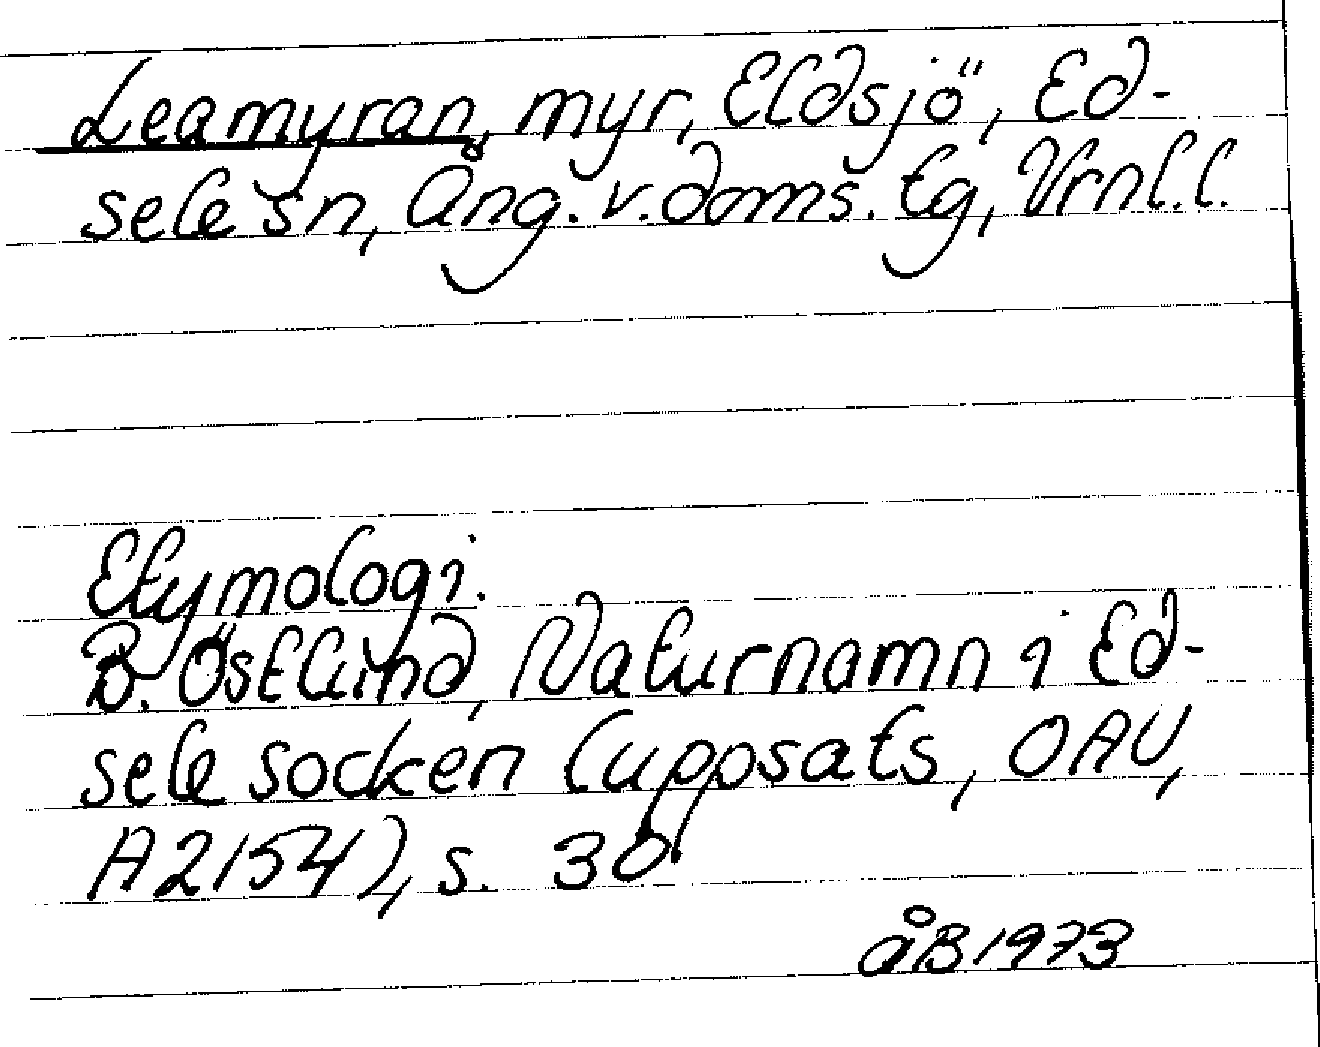 Leamyran, myr, Eldsjö, Ed-
sele sn, Ång. v. doms. tg, Vrnl.l.
Etymologi.
B. Östlund, Naturnamn i Ed-
sele socken (uppsats, OAU,
A2154), s. 30
åB 1973